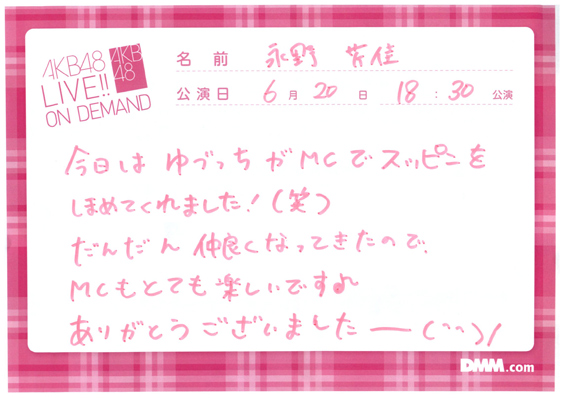 AKB48
LIVE!!
ON DEMAND
AKB
48
名前 永野 芹佳
公演日 6月20日 18:30公演
今日は ゆづっちがMCでスッピンを
ほめてくれました!(笑)
だんだん仲良くなってきたので、
MCもとても楽しいです♪
ありがとうございましたー(^^)/
DMM.com